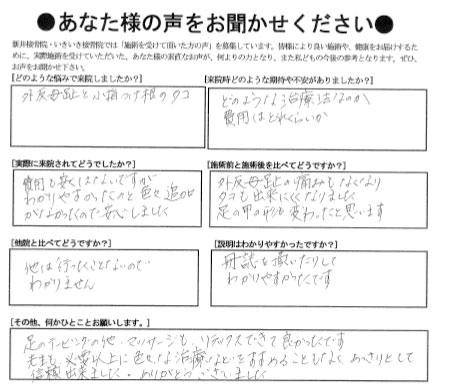 ●あなた様の声をお聞かせください●
新井接骨院・いきいき接骨院では「施術を受けて頂いた方の声」を募集しています。皆様により良い施術や、健康をお届けするた
めに、実際施術を受けていただいた、あなた様の素直なお声が、何よりの力となり、また私どもの今後の参考となります。ぜひ、
お声をお聞かせ下さい。
[どのような悩みで来院しましたか?]
外反母趾と小指つけ根のタコ
[来院時どのような期待や不安がありましたか?]
どのような治療法なのか
費用はどれくらいか
[実際に来院されてどうでしたか?]
費用も安くはないですが
わかりやすかったのと色々追加
がなかったので安心しました
[施術前と施術後を比べてどうですか?]
外反母趾の痛みもなくなり
タコも出来にくくなりました
足の甲の形も変わったと思います
[他院と比べてどうですか?]
他は行ったことないので
わかりません
[説明はわかりやすかったですか?]
冊誌を使いたりして
わかりやすかったです
[その他、何かひとことお願いします。]
足のテーピングの他、マッサージも、リラックスできて良かったです
必要以上に色々な治療などをすすめることもなく あっさりとして
信頼出来ました。ありがとうございました